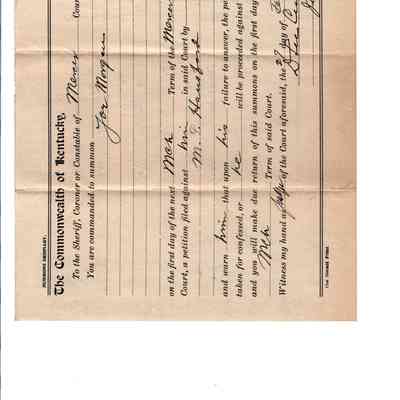 SUMMONS ORDINARY.
The Commonwealth of Kentucky,
To the Sheriff, Coroner or Constable of Mercer Cou
You are commanded to summon
Joe Morgan
on the first day of the next Mch Term of the Mercer
Court, a petition filed against him in said Court by
M. T.
and warn him that upon his failure to answer, the pe
taken for confessed, or he will be proceeded against
and you will make due return of this summons on the first day
Mch Term of said Court.
Witness my hand as Judge of the Court aforesaid, the 27 day of